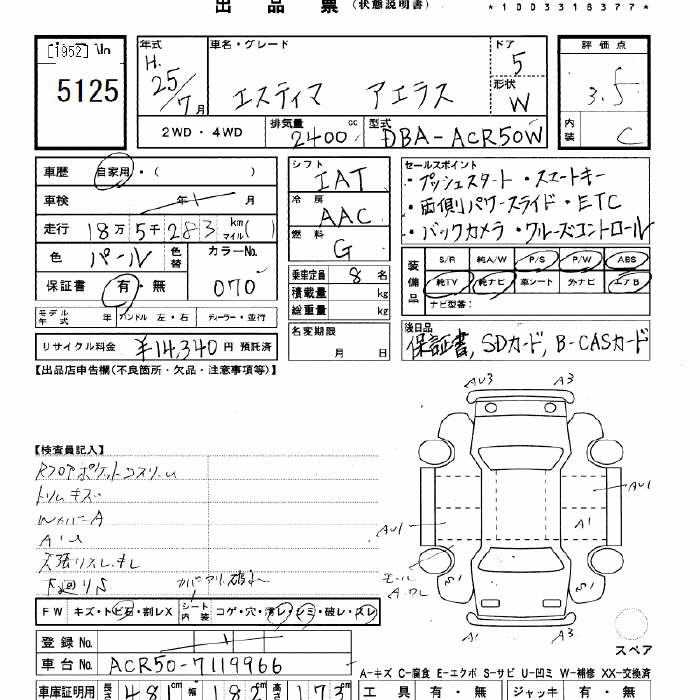 出品票 (状態説明書)
*1003318377*
[1952] 5125
年式 H. 25/7月
車名・グレード エスティマ アエラス
ドア 5
形状 W
評価点 3.5
内装 C
2WD・4WD
排気量 2400 cc
型式 DBA-ACR50W
車歴 自家用・( )
車検 年 月
走行 18万5千283 km マイル( )
色 パール 色替
カラーNo. 070
保証書 有・無
モデル年式 年 ハンドル 左・右 ディーラー・並行
リサイクル料金 ¥14,340円 預託済
シフト IAT
冷房 AAC
燃料 G
乗車定員 8 名
積載量 kg
総重量 kg
名変期限 月 日
セールスポイント
・プッシュスタート ・スマートキー
・両側パワースライド ・ETC
・バックカメラ ・クルーズコントロール
装備品 S/R 純A/W P/S P/W ABS
純TV 純ナビ 革シート 外ナビ エアB
ナビ型番:
後日品
保証書, SDカード, B-CASカード
【出品店申告欄(不良箇所・欠品・注意事項等)】
【検査員記入】
トリムキズ
AU3 A3
AU1
AU1 A1
A1 A3
スペア
FW キズ・トビ石・割レX シート内装 コゲ・穴・汚レ・シミ・破レ・スレ
登録No.
車台No. ACR50-7119966
A-キズ C-腐食 E-エクボ S-サビ U-凹ミ W-補修 XX-交換済
車庫証明用 長さ 481cm 幅 182cm 高さ 173cm
工具 有・無 ジャッキ 有・無